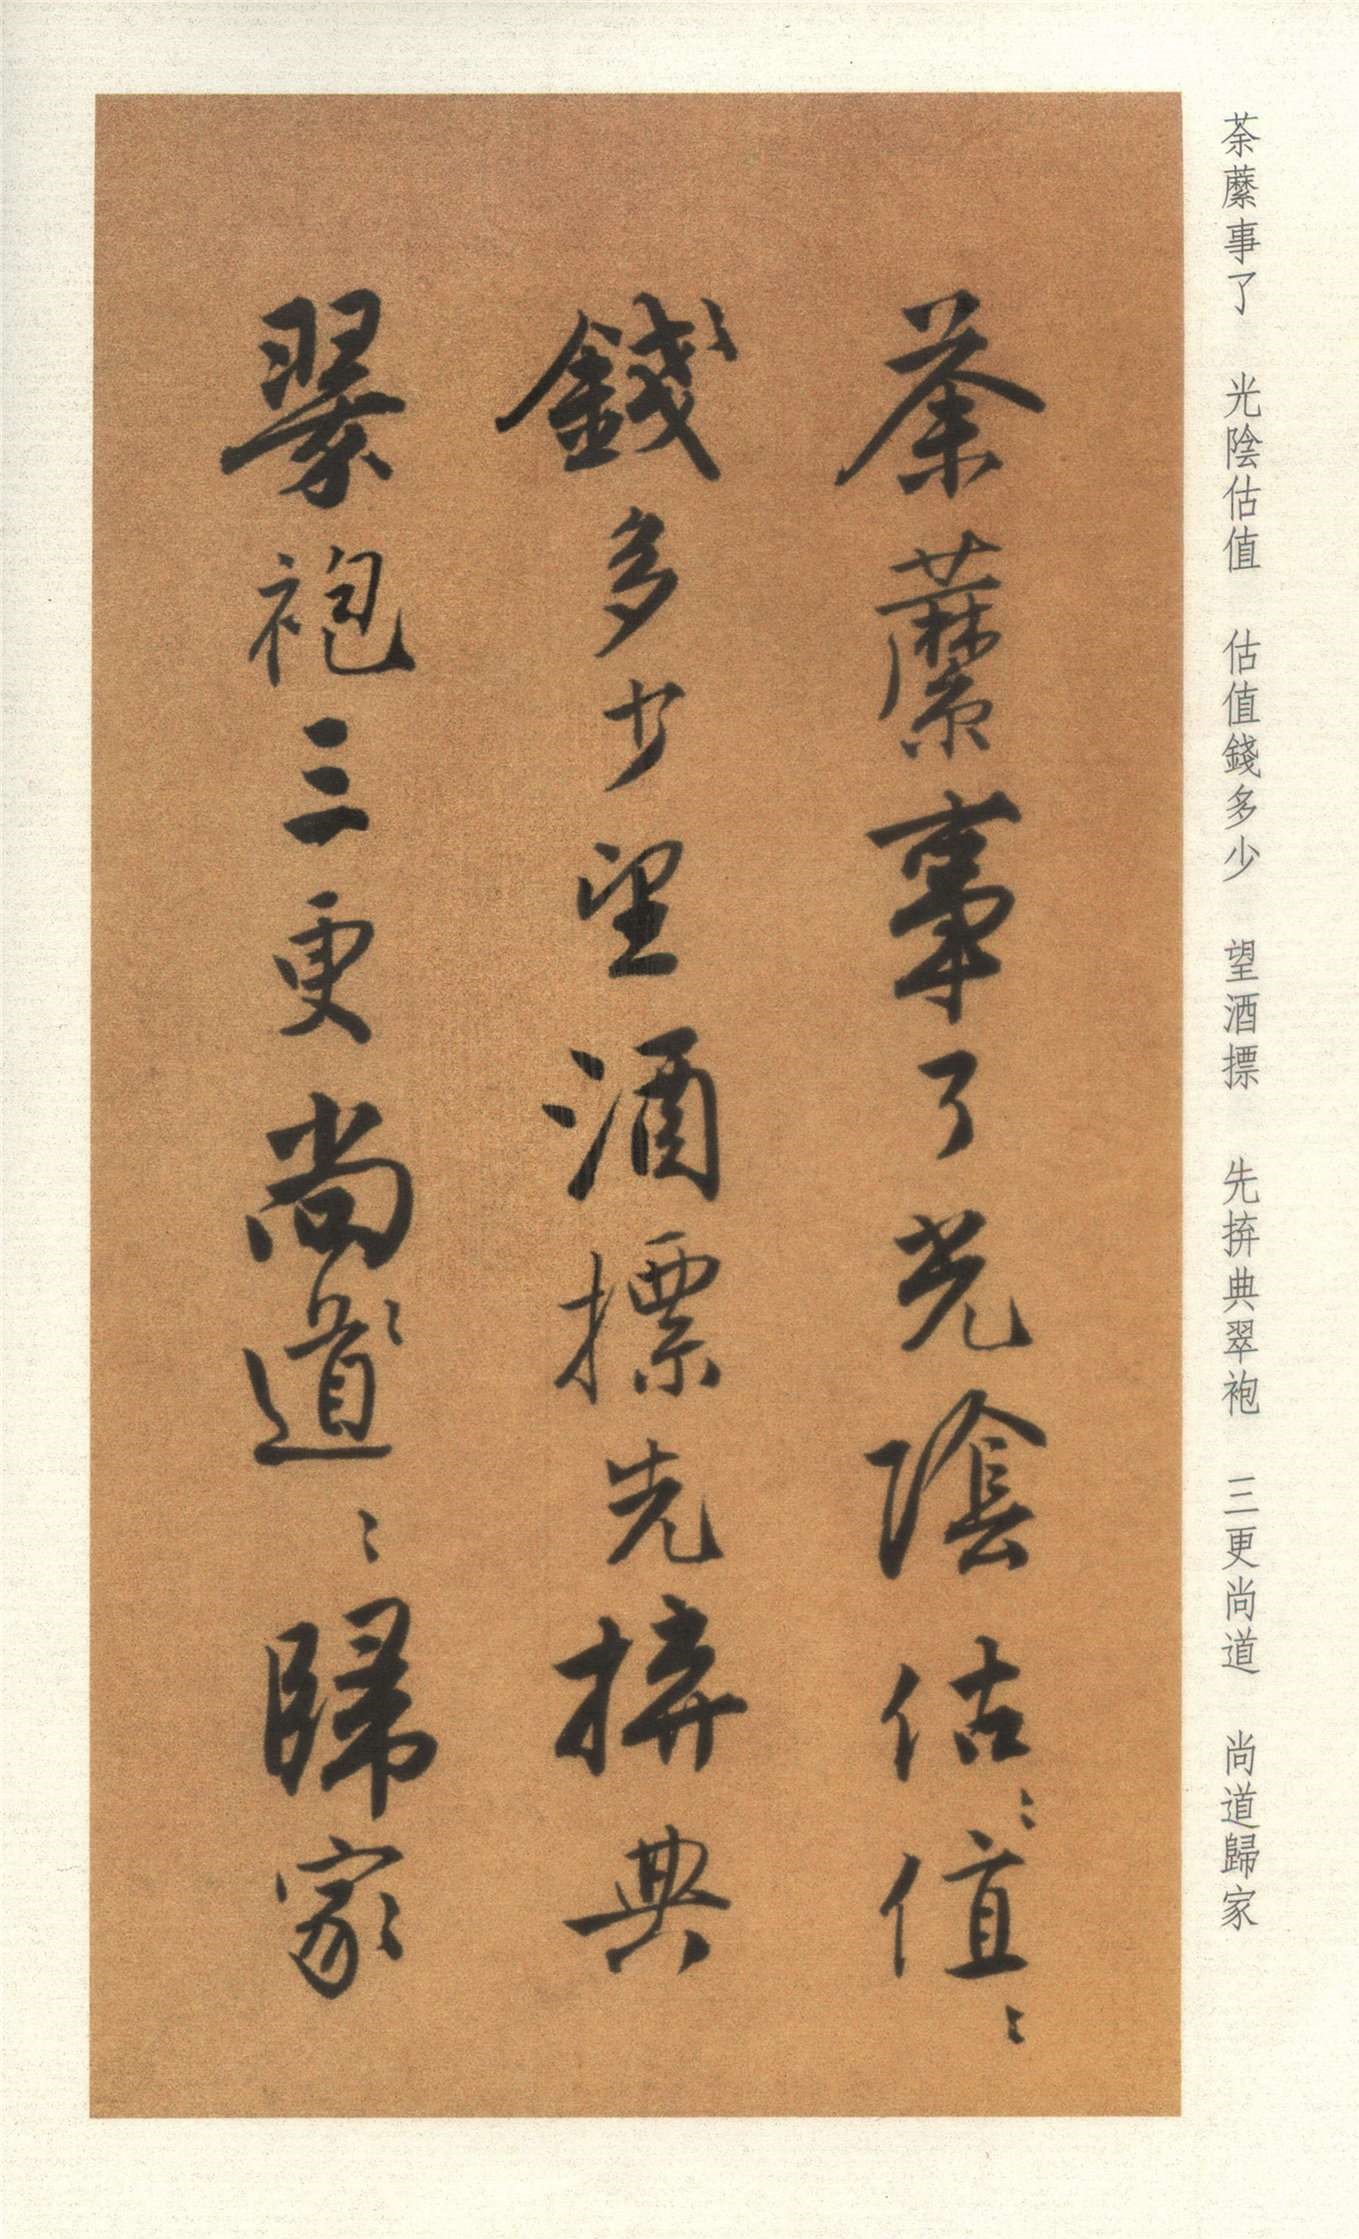 荼蘼事了　光陰估值　估值錢多少　望酒摽　先拚典翠袍　三更尚道　尚道歸家
荼蘼事了光陰估〻值〻
錢〻多少望酒摽先拚典
翠袍三更尚〻道〻歸家